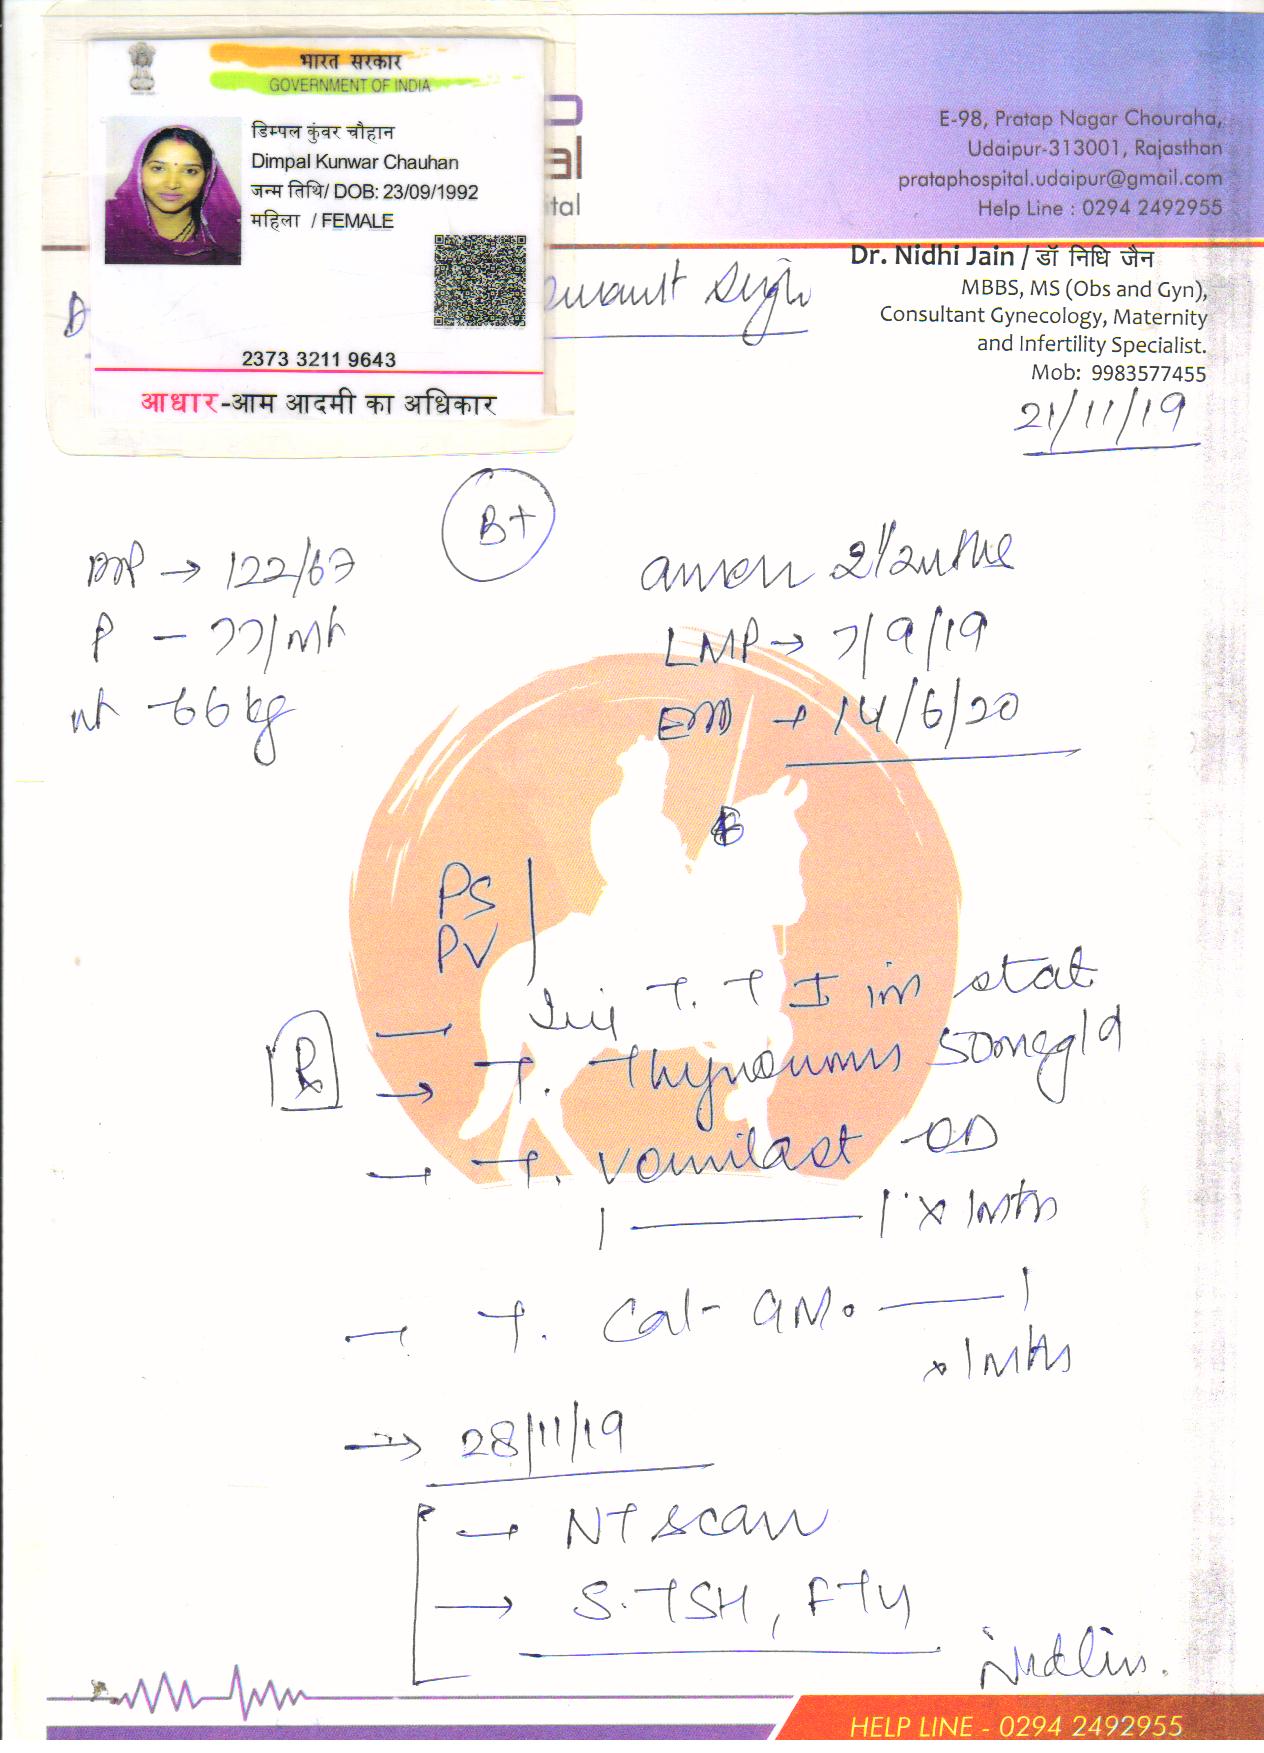 भारत सरकार
GOVERNMENT OF INDIA
डिम्पल कुंवर चौहान
Dimpal Kunwar Chauhan
जन्म तिथि/ DOB: 23/09/1992
महिला / FEMALE
2373 3211 9643
आधार-आम आदमी का अधिकार
al
ital
E-98, Pratap Nagar Chouraha,
Udaipur-313001, Rajasthan
prataphospital.udaipur@gmail.com
Help Line : 0294 2492955
Dr. Nidhi Jain / डॉ निधि जैन
MBBS, MS (Obs and Gyn),
Consultant Gynecology, Maternity
and Infertility Specialist.
Mob: 9983577455
Singh
21/11/19
B+
BP → 122/67
P - 77/mt
wt - 66 kg
LMP → 7/9/19
EDD → 14/6/20
PS
PV
Rx
Inj T.T I im stat
→ T. Thyronorm 50mcg/d
T. Vomilast OD
1 1 x 1mth
T. Cal-GM. 1
x 1mth
→ 28/11/19
→ NT scan
→ S.TSH, FT4
HELP LINE - 0294 2492955